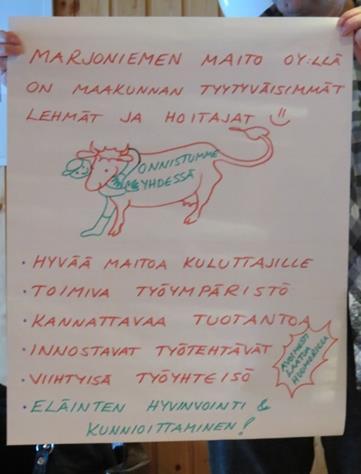 MARJONIEMEN MAITO OY:LLÄ
ON MAAKUNNAN TYYTYVÄISIMMÄT
LEHMÄT JA HOITAJAT
ONNISTUMME
YHDESSÄ
• HYVÄÄ MAITOA KULUTTAJILLE
• TOIMIVA TYÖYMPÄRISTÖ
• KANNATTAVAA TUOTANTOA
• INNOSTAVAT TYÖTEHTÄVÄT
• VIIHTYISÄ TYÖYHTEISÖ
• ELÄINTEN HYVINVOINTI &
KUNNIOITTAMINEN!
LAATUA
HUUMORILLA